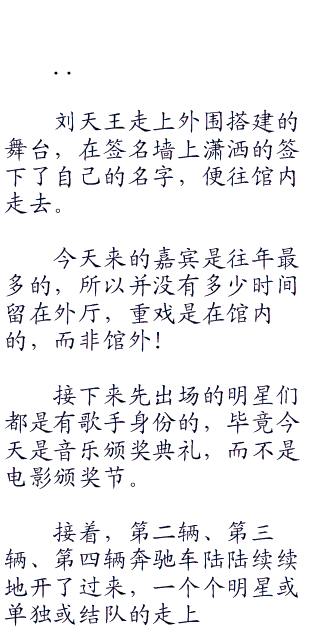 ..
刘天王走上外围搭建的
舞台，在签名墙上潇洒的签
下了自己的名字，便往馆内
走去。
今天来的嘉宾是往年最
多的，所以并没有多少时间
留在外厅，重戏是在馆内
的，而非馆外！
接下来先出场的明星们
都是有歌手身份的，毕竟今
天是音乐颁奖典礼，而不是
电影颁奖节。
接着，第二辆、第三
辆、第四辆奔驰车陆陆续续
地开了过来，一个个明星或
单独或结队的走上